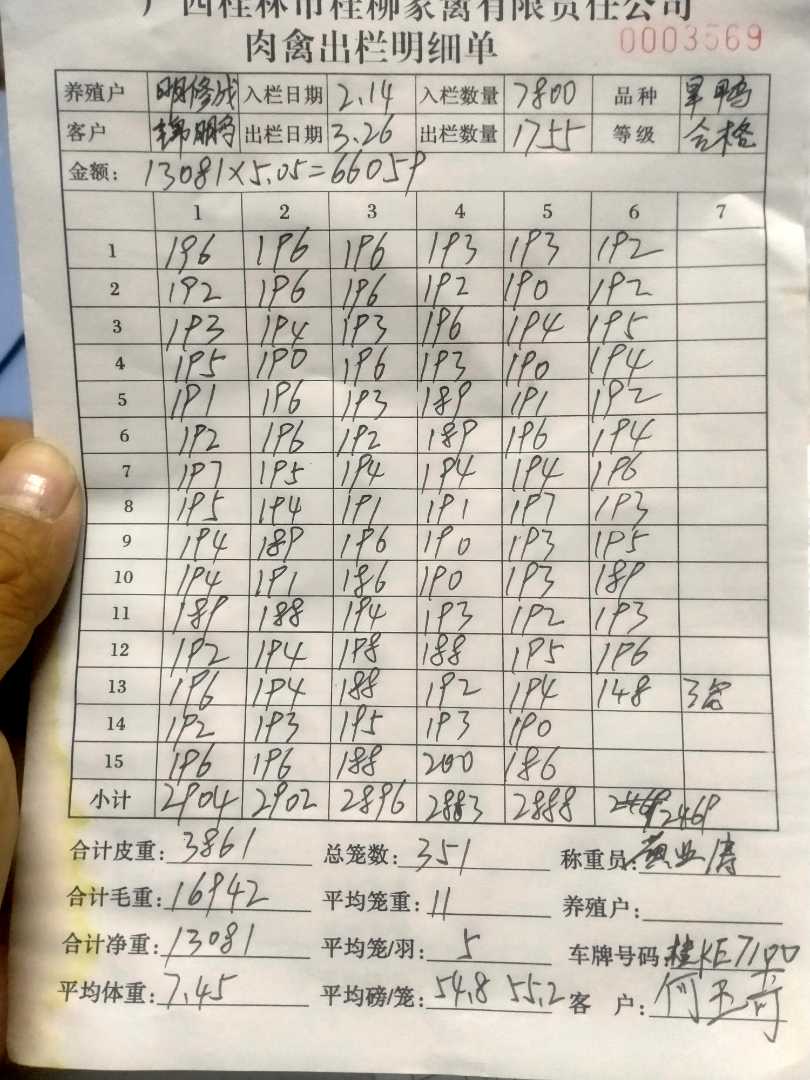 广西桂林市桂柳家禽有限责任公司
肉禽出栏明细单 0003569
养殖户 明修成 入栏日期 2.14 入栏数量 7800 品种 旱鸭
客户 出栏日期 3.26 出栏数量 1755 等级 合格
金额: 13081×5.05=66059
1 2 3 4 5 6 7
1 196 196 196 193 193 192
2 192 196 196 192 190 192
3 193 194 193 196 194 195
4 195 190 196 193 190 194
5 191 196 193 189 191 192
6 192 196 192 189 196 194
7 197 195 194 194 194 196
8 195 194 191 191 197 193
9 194 189 196 190 193 195
10 194 191 186 190 193 189
11 189 188 194 193 192 193
12 192 194 198 188 195 196
13 196 194 188 192 194 148 3
14 192 193 195 193 190
15 196 196 188 200 186
小计 2904 2902 2896 2883 2888 2469
合计皮重: 3861 总笼数: 351 称重员: 业
合计毛重: 16942 平均笼重: 11 养殖户:
合计净重: 13081 平均笼/羽: 5 车牌号码: 桂KE7190
平均体重: 7.45 平均磅/笼: 54.8 55.2 客 户: 何